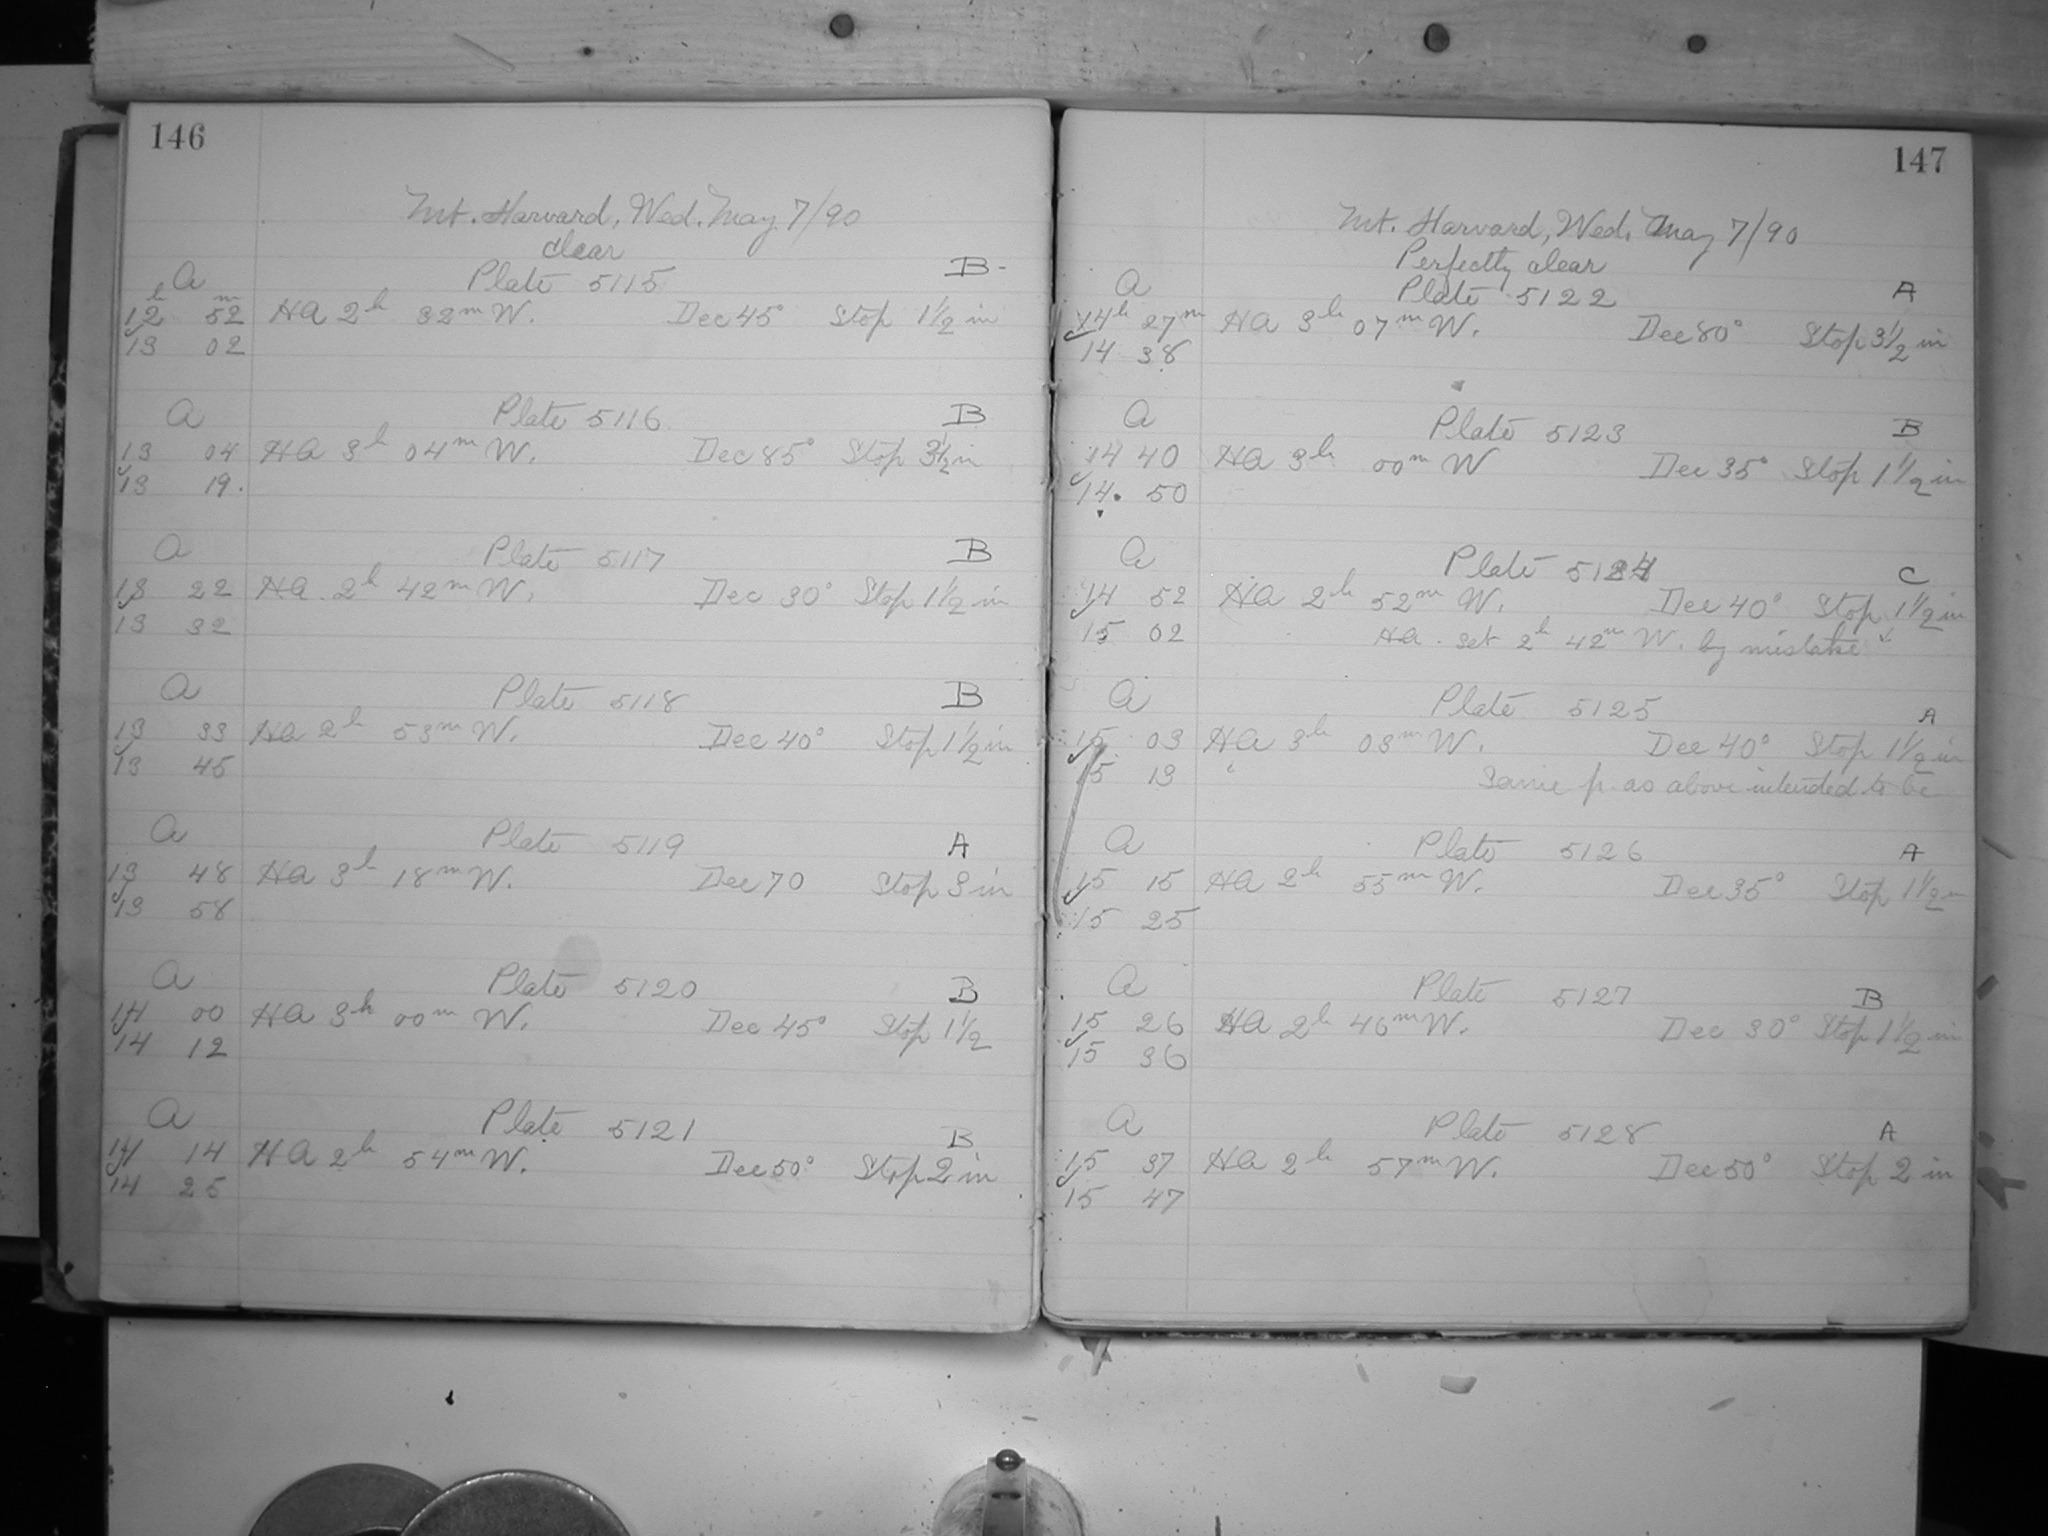 146
Mt. Harvard, Wed. May 7/90
clear
a Plate 5115 B-
12h 52m HA 2h 32m W. Dec 45° Stop 1 1/2 in
13 02
a Plate 5116 B
13 04 HA 3h 04m W. Dec 85° Stop 3 1/2 in
13 19.
a Plate 5117 B
13 22 HA 2h 42m W. Dec 30° Stop 1 1/2 in
13 32
a Plate 5118 B
13 33 HA 2h 53m W. Dec 40° Stop 1 1/2 in
13 45
a Plate 5119 A
13 48 HA 3h 18m W. Dec 70 Stop 3 in
13 58
a Plate 5120 B
14 00 HA 3h 00m W. Dec 45° Stop 1 1/2
14 12
a Plate 5121 B
14 14 HA 2h 54m W. Dec 50° Stop 2 in
14 25
147
Mt. Harvard, Wed. May 7/90
Perfectly clear
a Plate 5122 A
14h 27m HA 3h 07m W. Dec 80° Stop 3 1/2 in
14 38
a Plate 5123 B
14 40 HA 3h 00m W Dec 35° Stop 1 1/2 in
14. 50
a Plate 5124 C
14 52 HA 2h 52m W. Dec 40° Stop 1 1/2 in
15 02 HA. set 2h 42m W. by mistake
a Plate 5125 A
15 03 HA 3h 03m W. Dec 40° Stop 1 1/2 in
15 13 Same p. as above intended to be
a Plate 5126 A
15 15 HA 2h 55m W. Dec 35° Stop 1 1/2 in
15 25
a Plate 5127 B
15 26 HA 2h 46m W. Dec 30° Stop 1 1/2 in
15 36
a Plate 5128 A
15 37 HA 2h 57m W. Dec 50° Stop 2 in
15 47